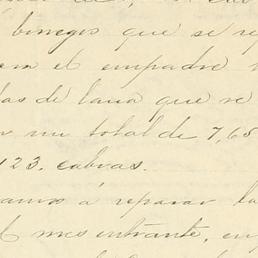 borregos que se re
el empadre
de lana que se
un total de 7,65
123. cabras.
á reparar la
mes entrante, en